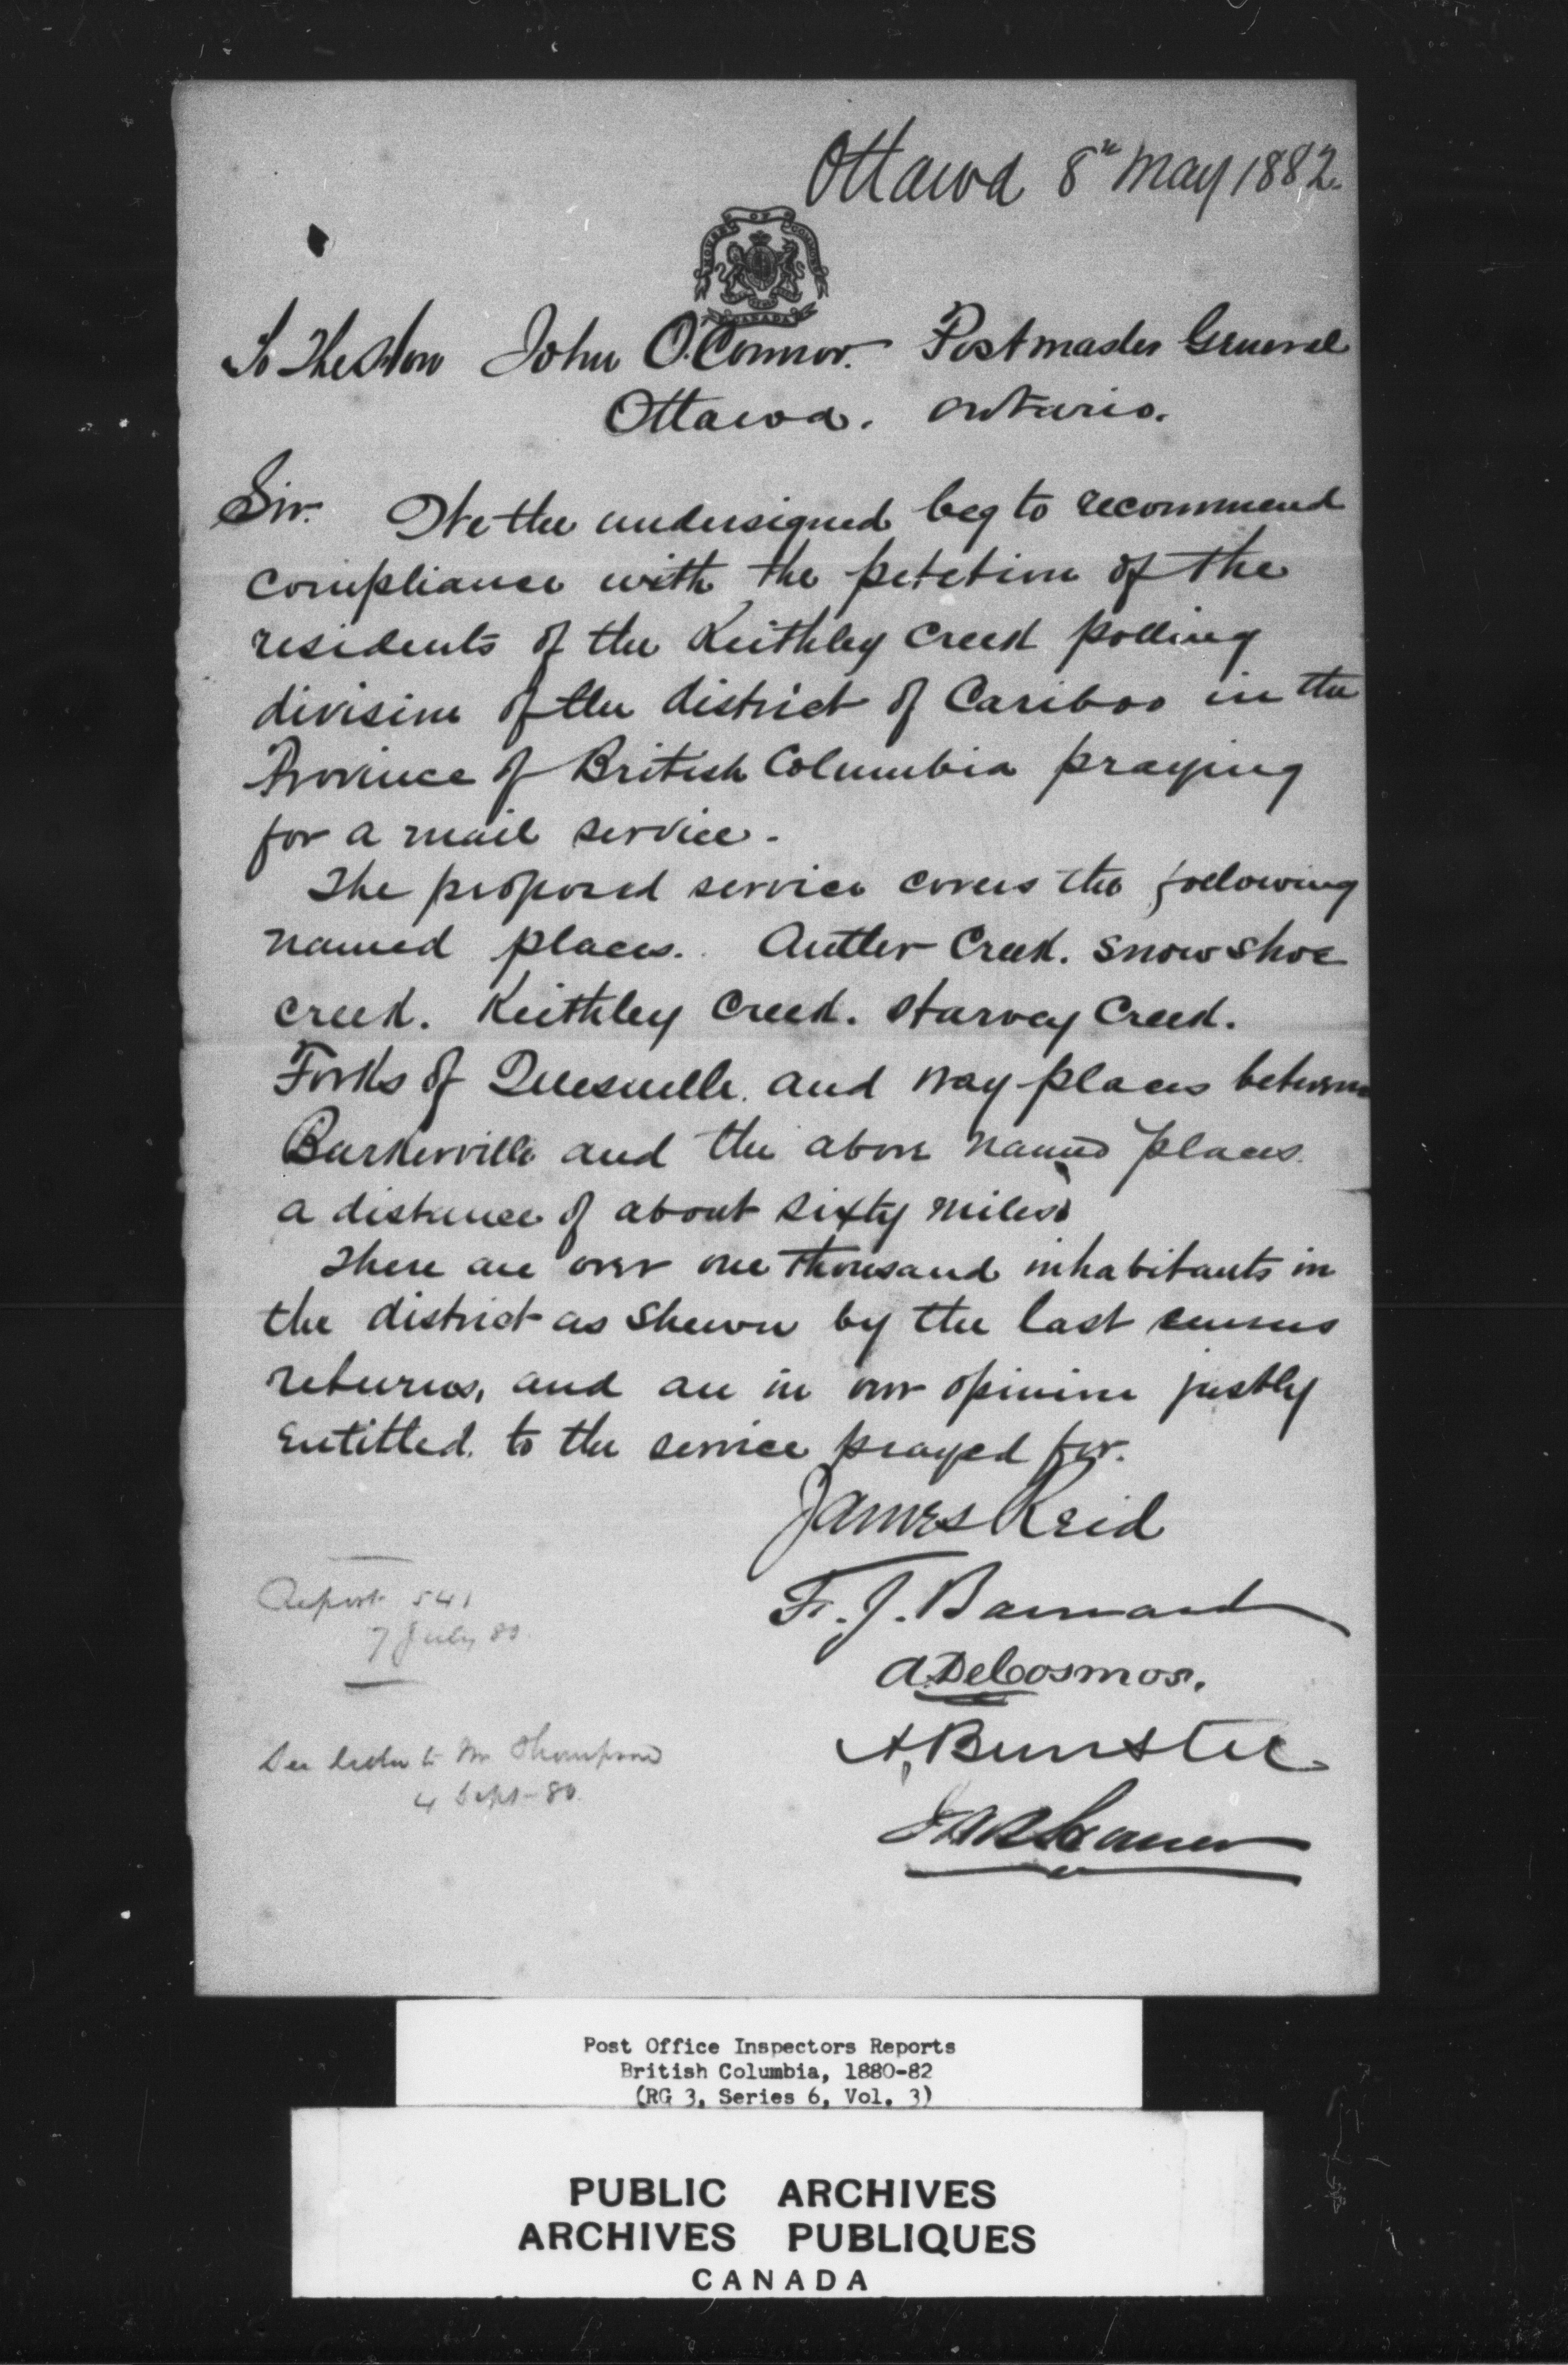 Ottawa 8th May 1882.
HOUSE OF COMMONS
CANADA
To The Hon John O.Connor. Postmaster General
Ottawa. Ontario.
Sir. We the undersigned beg to recommend
compliance with the petetion of the
residents of the Keithley Creek polling
division of the district of Cariboo in the
Province of British Columbia praying
for a mail service.
The proposed service covers the following
named places. Antler Creek. Snow shoe
creek. Keithley Creek. Harvey Creek.
Forks of Quesnelle. and way places between
Barkerville and the above named places.
a distance of about sixty miles.
There are over one thousand inhabitants in
the district as shewn by the last census
returns, and are in our opinion justly
entitled. to the service prayed for.
James Reid
F. J. Barnard
A DeCosmos.
A. Bunster
Report 541
7 July 80.
See letter to Mr Thompson
4 Sept-80.
Post Office Inspectors Reports
British Columbia, 1880-82
(RG 3, Series 6, Vol. 3)
PUBLIC ARCHIVES
ARCHIVES PUBLIQUES
CANADA